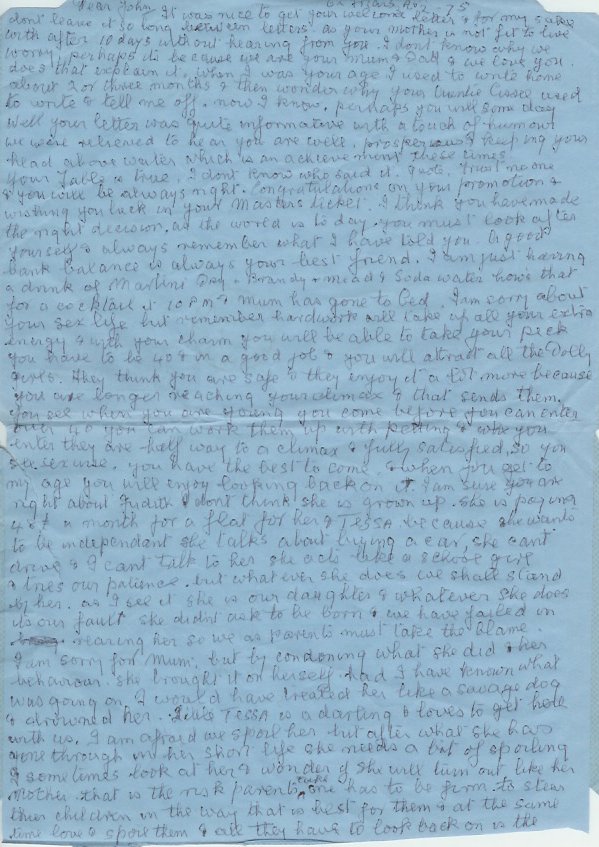 Dear John, It was nice to get your welcome letter & for my sake
dont leave it so long between letters as your mother is not fit to live
with after 10 days without hearing from you. I dont know why we
worry, perhaps its because we are your Mum & Dad & we love you.
does that explain it. when I was your age I used to write home
about 2 or three months & then wonder why your Auntie Cissie used
to write & tell me off. now I know, perhaps you will some day
Well your letter was quite informative with a touch of humour
we were relieved to hear you are well, prosperous & keeping your
head above water which is an achievment these times
Your fable is true. I dont know who said it. quote. trust no one
& you will be always right. Congratulations on your promotion &
wishing you luck in your Masters ticket. I think you have made
the right decision, as the world is to day. you must look after
yourself & always remember what I have told you. A good
bank balance is always your best friend. I am just having
a drink of Martini Dry + Brandy + mead & Soda water hows that
for a cocktail. it 10 P M & mum has gone to bed. I am sorry about
your sex life but remember hardwork will take up all your extra
energy & with your charm you will be able to take your pick
you have to be 40 & in a good job & you will attract all the Dolly
girls. They think you are safe & they enjoy it a lot more because
you are longer reaching your climax & that sends them.
you see when you are young you come before you can enter
over 40 you can work them up with petting & when you
enter they are half way to a climax & fully satisfied, so you
you have the best to come. & when you get to
my age you will enjoy looking back on it. I am sure you are
right about Judith & dont think she is grown up. she is paying
a month for a flat for her & TESSA because she wants
to be independant she talks about buying a car, she cant
drive & I cant talk to her she acts like a school girl
& tries our patience. but what ever she does we shall stand
by her. as I see it she is our daughter & whatever she does
its our fault she didnt ask to be born & we have failed in
rearing her so we as parents must take the blame.
I am sorry for Mum, but by condoning what she did & her
behaviour. she brought it on herself. had I have known what
was going on. I would have treated her like a savage dog
& drowned her. Little TESSA is a darling & loves to get hold
with us. I am afraid we spoil her but after what she has
gone through in her short life she needs a bit of spoiling
I some times look at her & wonder if she will turn out like her
mother. that is the risk parents take one has to be firm to steer
thier children in the way that is best for them & at the same
time love & spoil them & all they have to look back on is the